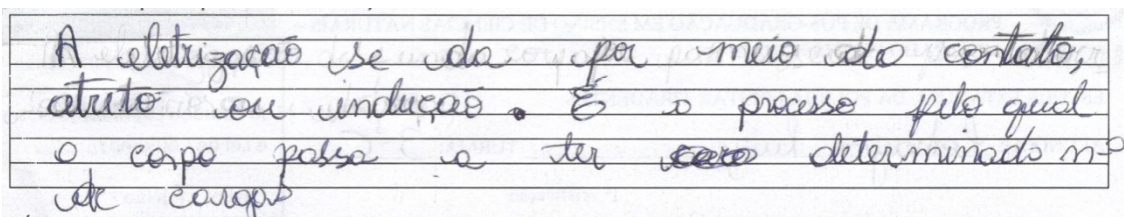 A eletrização se da por meio do contato,
atrito ou indução. É o processo pelo qual
o corpo passa a ter determinado nº
de cargas